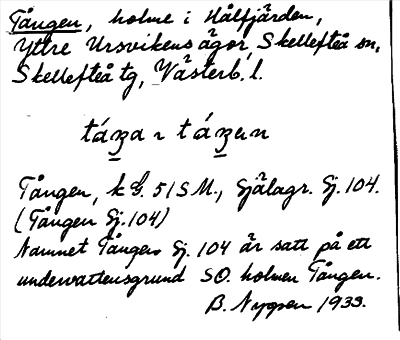 Tången, holme i Hålfjärden,
Yttre Ursvikens ägor, Skellefteå sn,
Skellefteå tg, Västerb. l.
Tången, k bl. 51 SM., Själagr. Sj. 104.
(Tången Sj. 104)
Namnet Tången Sj. 104 är satt på ett
undervattensgrund SO. holmen Tången.
B. 1933.